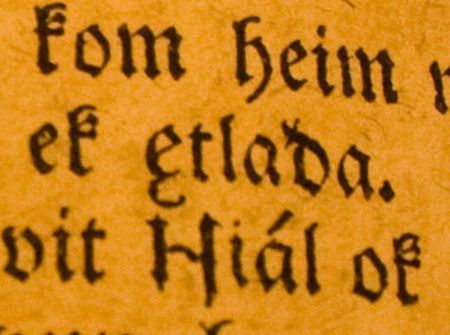 kom heim
ek ętlaða.
vit Niál ok